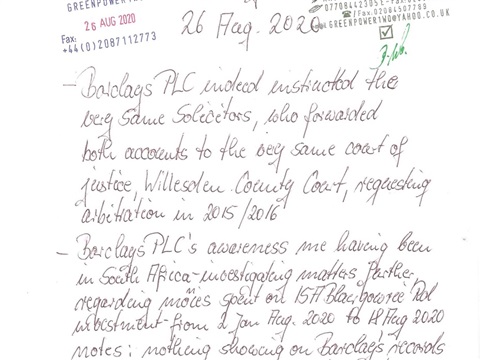 GREENPOWER1NO@YAHOO
26 AUG 2020
Fax:
+44(0)2087112773
26 Aug. 2020
/Fax.02084507789
GREENPOWER1NO@YAHOO.CO.UK
- Barclays PLC indeed instructed the
very same Solicitors, who forwarded
both accounts to the very same court of
justice, Willesden County Court, requesting
arbitration in 2015/2016
- Barclays PLC's awareness me having been
in South Africa-investigating matters further
regarding monies spent on 15A Blackgowrie Rd
investment - from 2 Jan Aug. 2020 to 18 Aug 2020
notes: nothing showing on Barclay's records